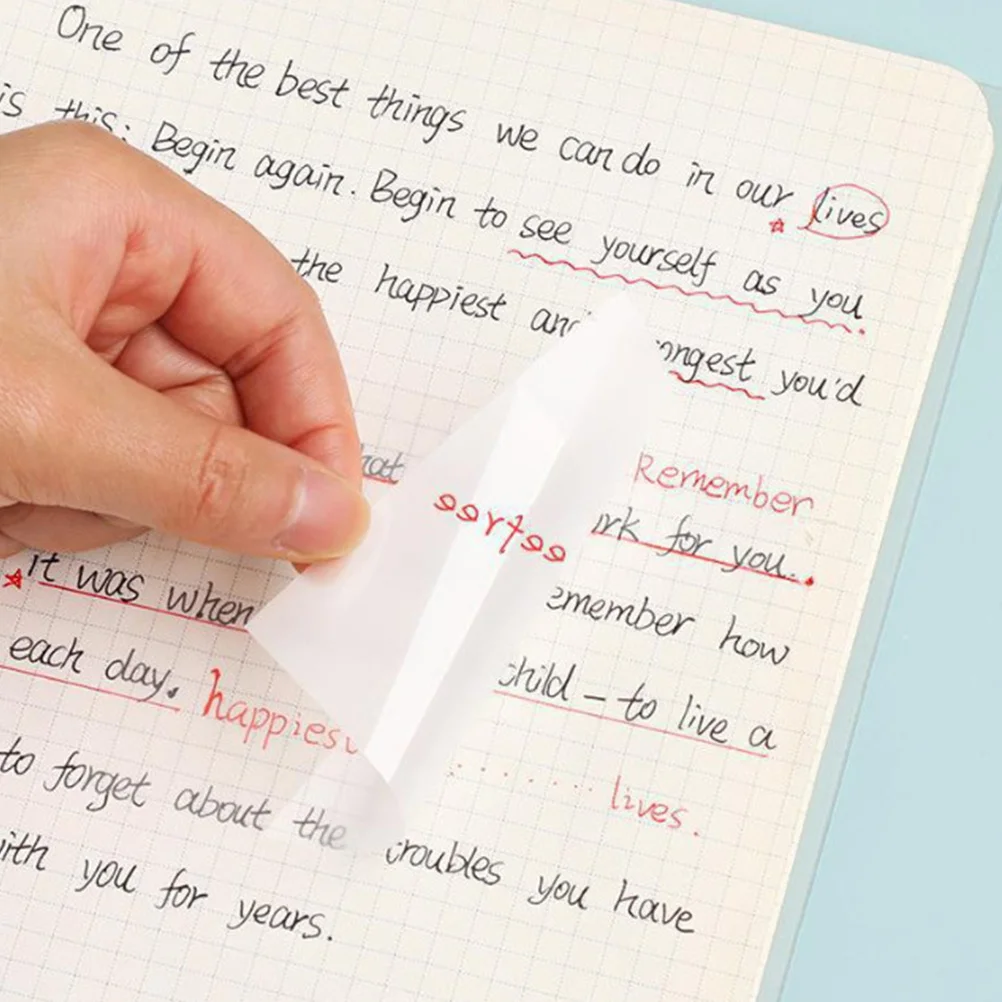 One of the best things we can do in our lives
is this: Begin again. Begin to see yourself as you
the happiest and ongest you'd
Remember
hat rk for you.
it was when emember how
each day. child – to live a
happies
lives.
to forget about the troubles you have
ith you for years.